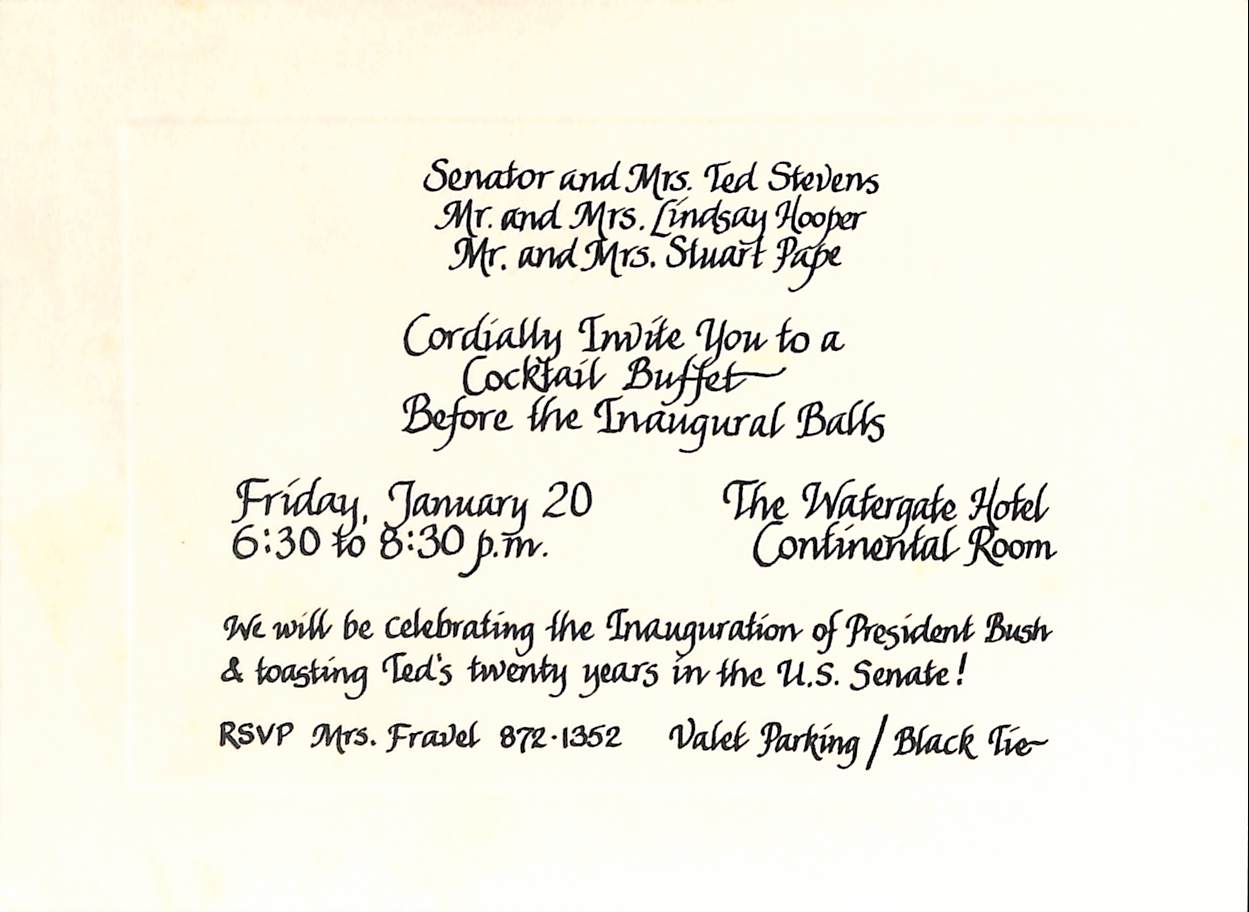 Senator and Mrs. Ted Stevens
Mr. and Mrs. Lindsay Hooper
Mr. and Mrs. Stuart Pape
Cordially Invite You to a
Cocktail Buffet
Before the Inaugural Balls
Friday, January 20
6:30 to 8:30 p.m.
The Watergate Hotel
Continental Room
We will be celebrating the Inauguration of President Bush
& toasting Ted's twenty years in the U.S. Senate!
RSVP Mrs. Fravel 872·1352 Valet Parking / Black Tie